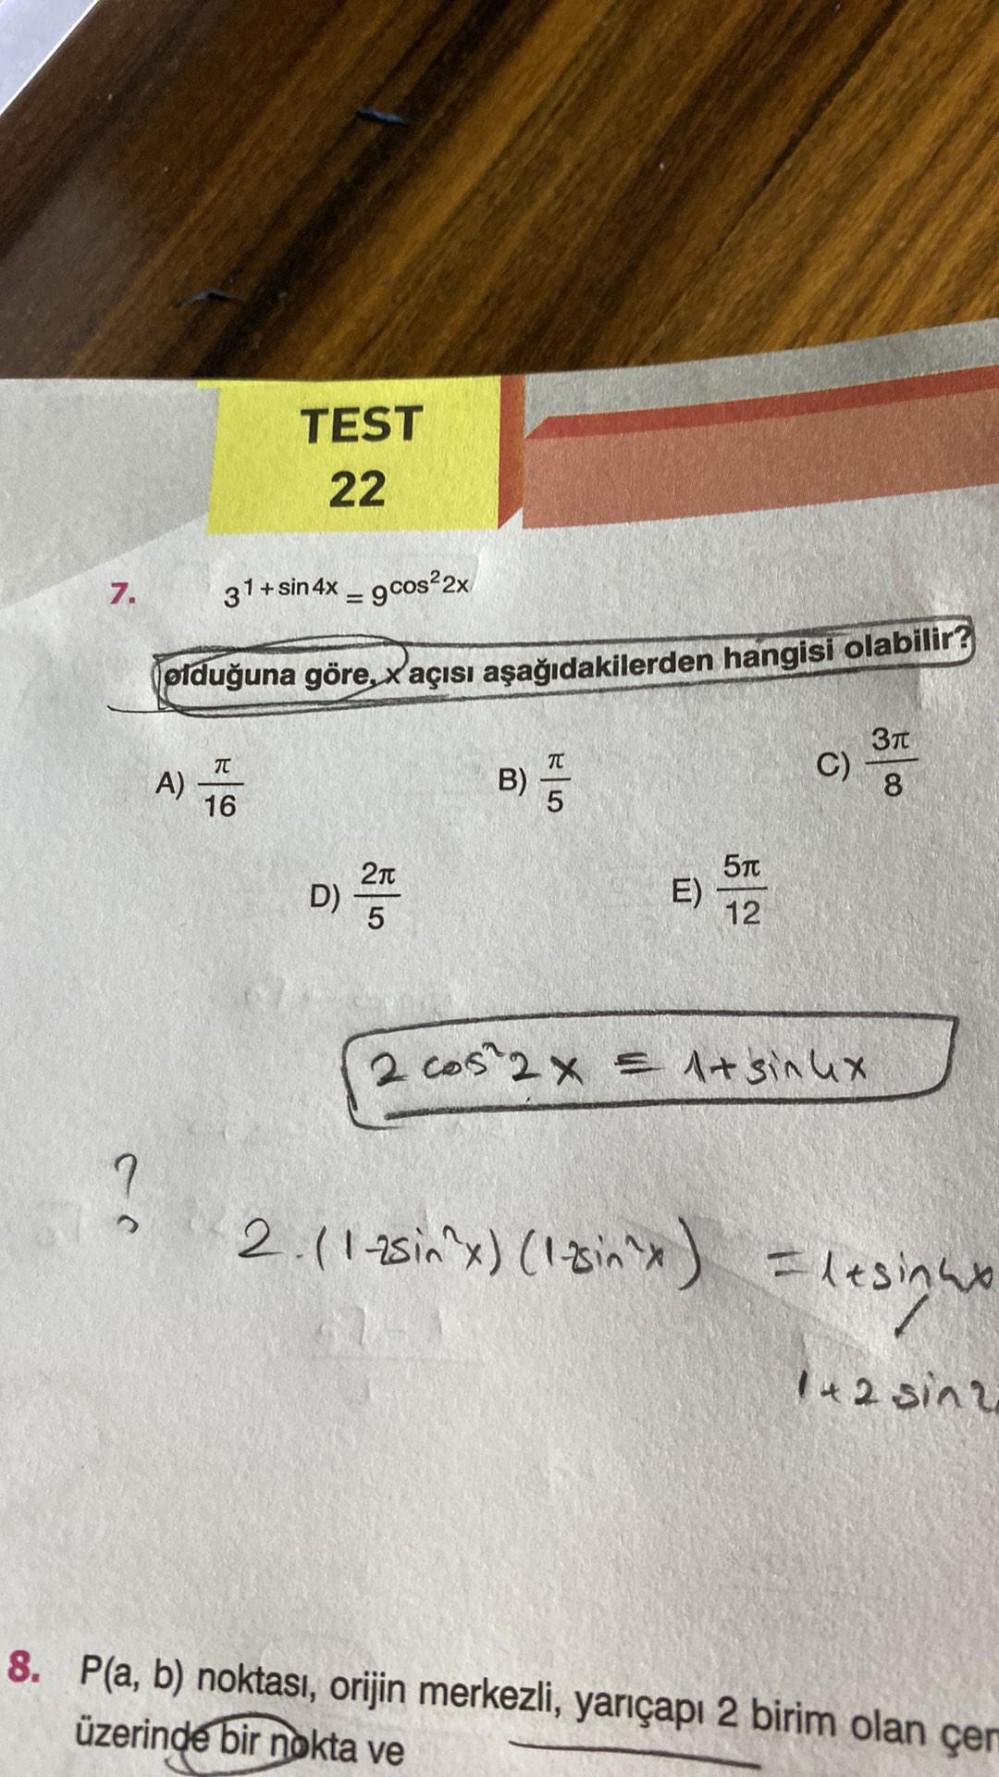 TEST
22
7. 3^{1+sin4x} = 9^{cos²2x}
olduğuna göre, x açısı aşağıdakilerden hangisi olabilir?
A) π/16 B) π/5 C) 3π/8
D) 2π/5 E) 5π/12
2 cos²2x = 1+sin4x
?
2.(1-2sin²x)(1-2sin²x) = 1+sin4x
1+2 sin2
8. P(a, b) noktası, orijin merkezli, yarıçapı 2 birim olan çem
üzerinde bir nokta ve